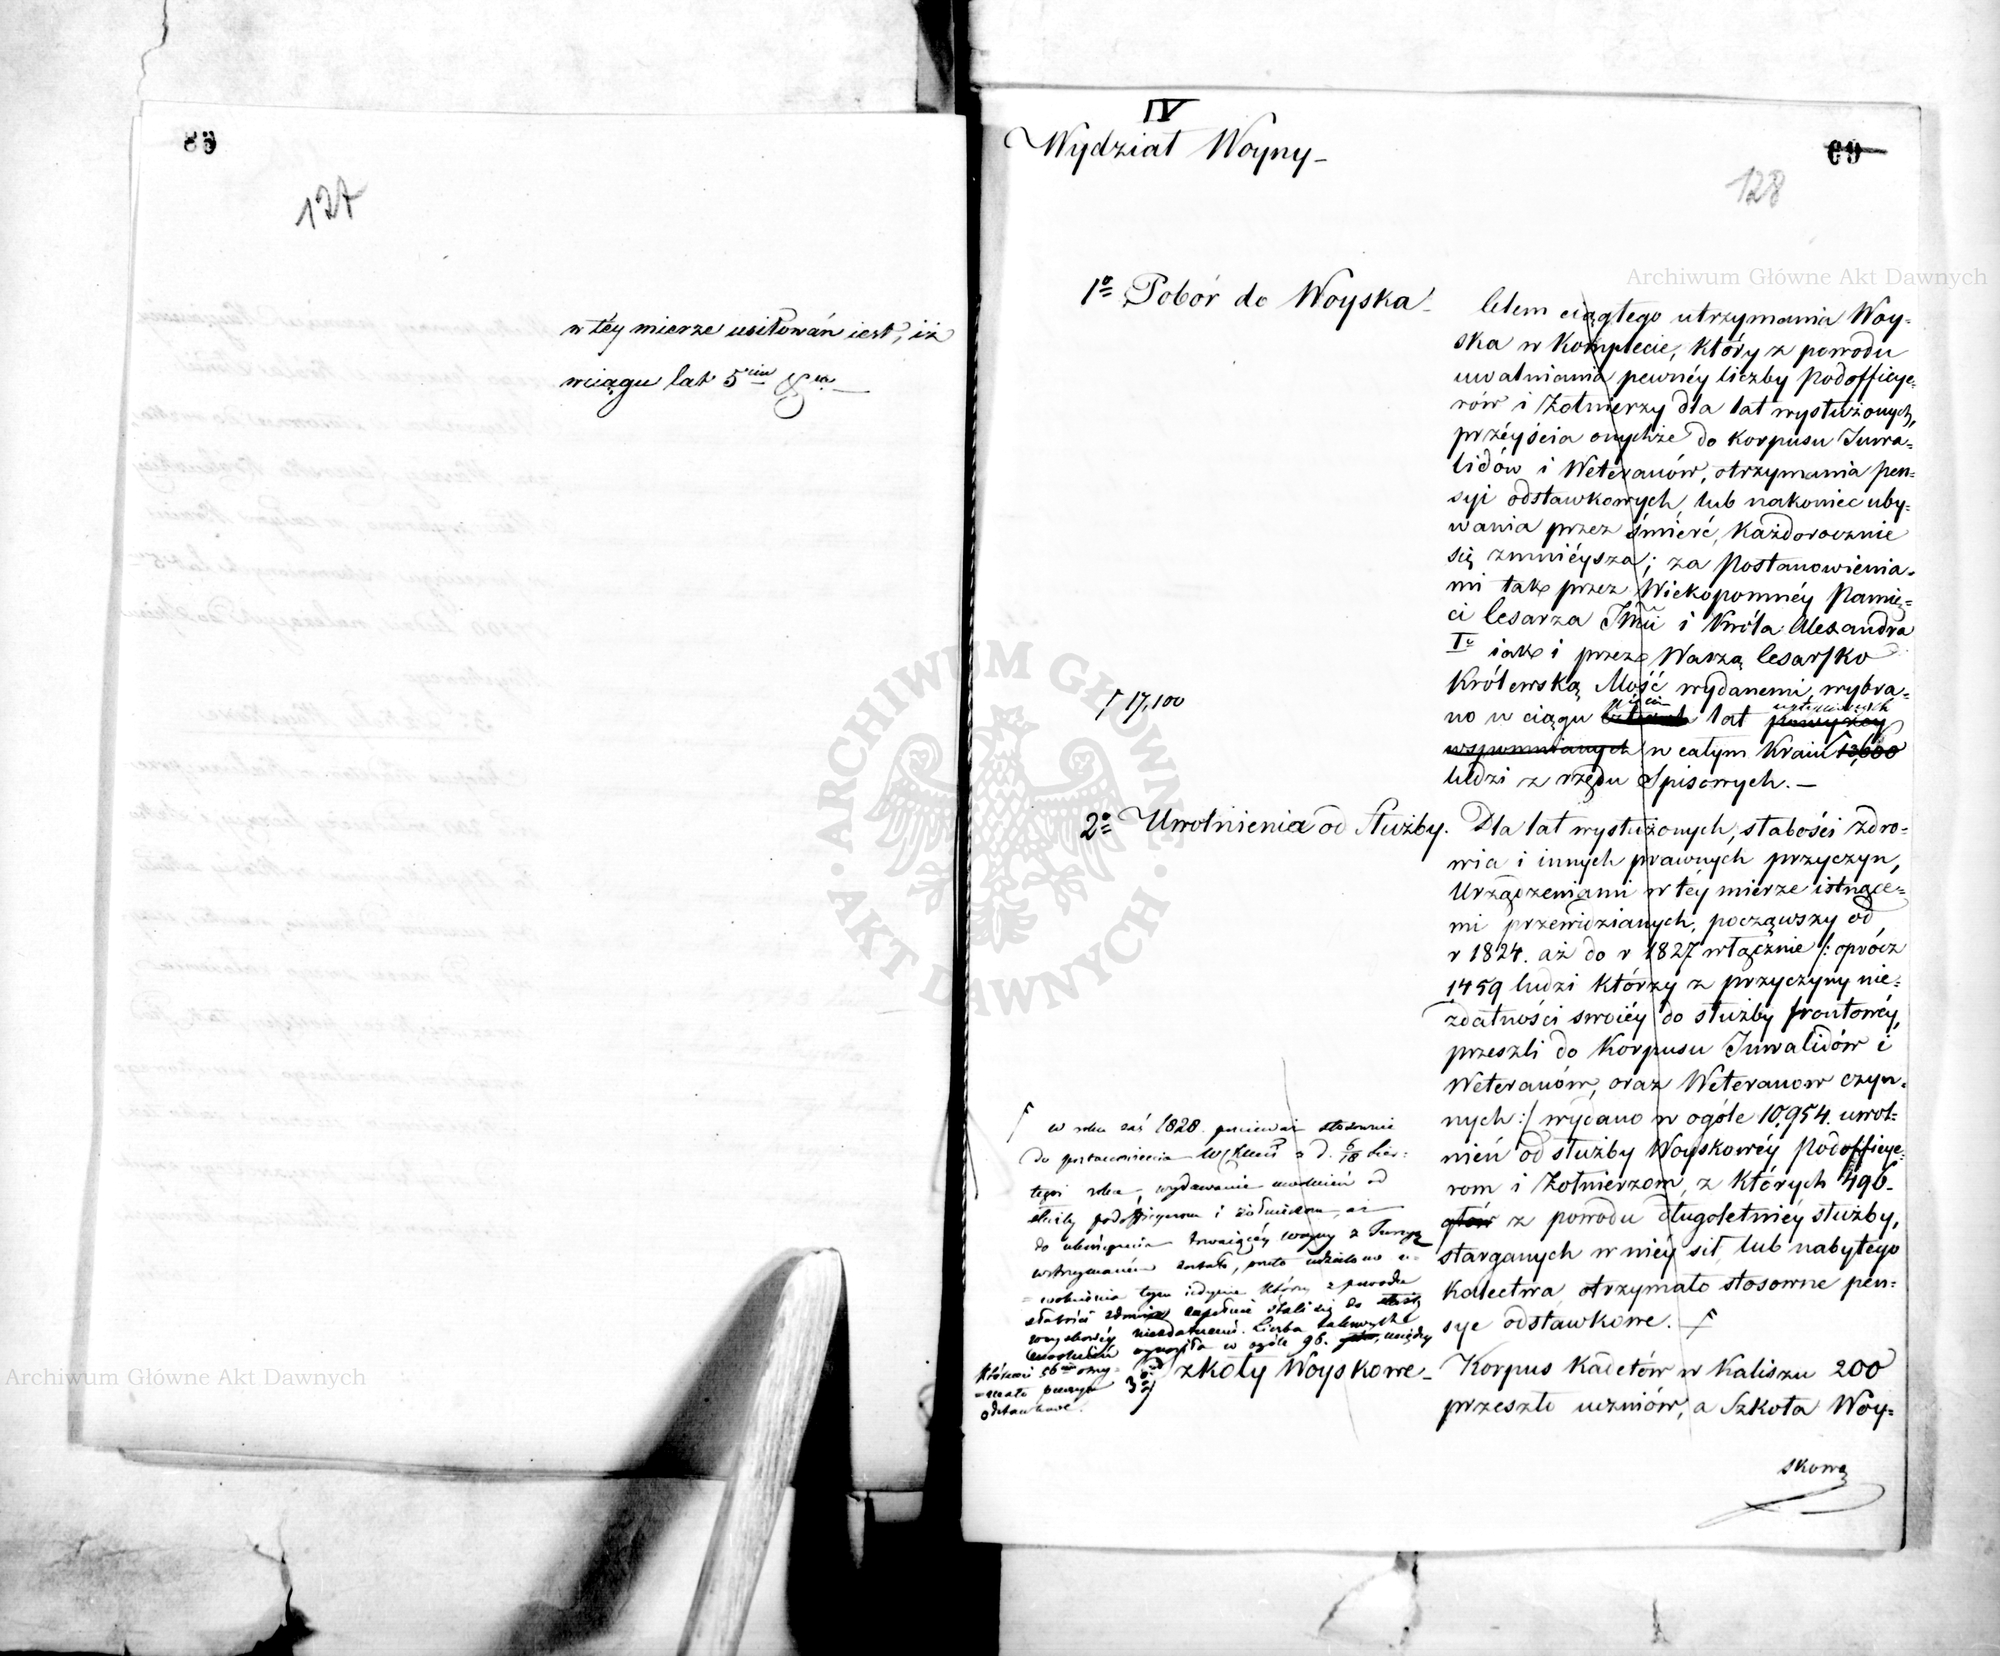 89
127
w téy mierze usiłowań iest, iż
wciągu lat 5ciu &ca
IV
Wydział Woyny
69
128
Archiwum Główne Akt Dawnych
1o Pobór do Woyska
Celem ciągłego utrzymania Woy-
ska w Komplecie, który z powodu
uwalniania pewnéy liczby Podofficye-
rów i Żołnierzy dla lat wysłużonych,
przéyścia onychże do Korpusu Inwa-
lidów i Weteranów, otrzymania pen-
syi odstawkowych, lub nakoniec uby-
wania przez śmierć, Każdorocznie
się zmnieysza; za Postanowienia-
mi tak przez Wiekopomnéy Pamię-
ci Cesarza Jmći i Króla Alexandra
Io iak i przez Waszą Cesarsko
Królewską Mość wydanemi, wybra-
no w ciągu pięciu lat upłynionych powyżey
wspomnianych w całym Kraiu 13,600
ludzi z rzędu Spisowych.—
Ƒ 17,100
2o Uwolnienia od Służby.
Dla lat wysłużonych, słabości zdro-
wia i innych prawnych przyczyn,
Urządzeniami w téy mierze istnące-
mi przewidzianych, począwszy od
r 1824. aż do r 1827 włącznie /: oprócz
1459 ludzi którzy z przyczyny nie-
zdatności swoiéy do służby frontowéy,
przeszli do Korpusu Inwalidów i
Weteranów, oraz Weteranow czyn-
nych :/ wydano w ogóle 10,954. uwol-
nień od służby Woyskowéy Podofficye-
rom i Żołnierzom, z których 496.
głów z powodu długoletniéy służby,
starganych w niéy sił, lub nabytego
kalectwa otrzymało stosowne pen-
sye odstawkowe. Ƒ
Ƒ w roku zaś 1828. ponieważ stosownie
do postanowienia W X Mci z d. 6/18
tegoż roku, wydawanie uwolnień od
służby podofficyerom i żołnierzom, aż
do ukończenia trwaiącéy woyny z Turcyą
wstrzymaném zostało, przeto udzielono u-
wolnienia tym iedynie którzy z powodu
słabości zdrowia zupełnie stali się do służby
woyskowéy niezdatnemi. Liczba takowych
uwolnień wynosiła w ogóle 96. głów, między
któremi 56 otrzy-
mało pensye
odstawkowe.
3o Szkoły Woyskowe
Korpus Kadetów w Kaliszu 200
przeszło uczniów, a Szkoła Woy-
skowa
ARCHIWUM GŁÓWNE · AKT DAWNYCH ·
Archiwum Główne Akt Dawnych